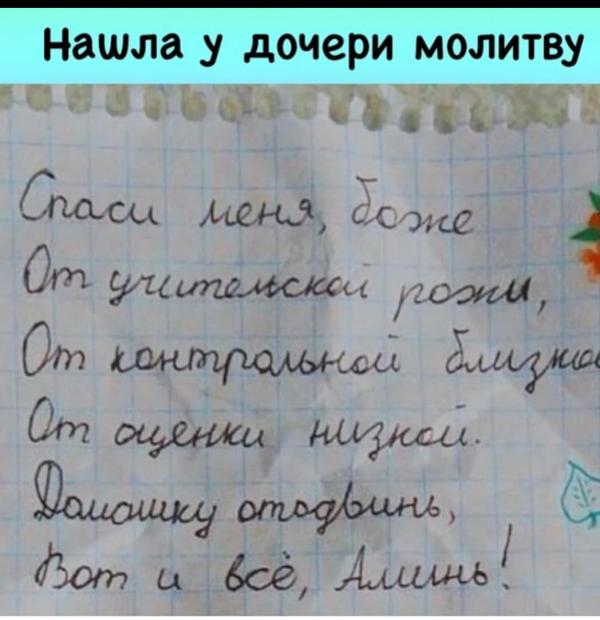 Нашла у дочери молитву
Спаси меня, боже
От учительской рожи,
От контрольной близко
От оценки низкой.
Домашку отодвинь,
Вот и всё, Аминь!